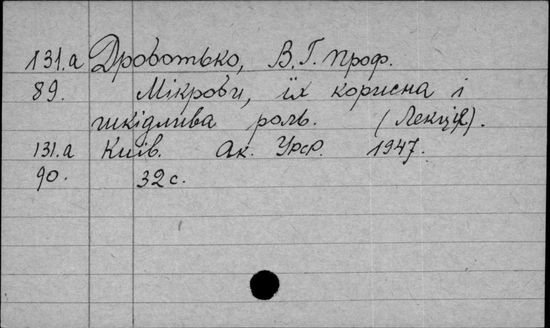 131.а Дроботько, В.Г. проф.
89. Мікроби, їх корисна і
шкідлива роль. (Лекція).
131.а Київ. Ак. Урср. 1947.
90. 32 с.